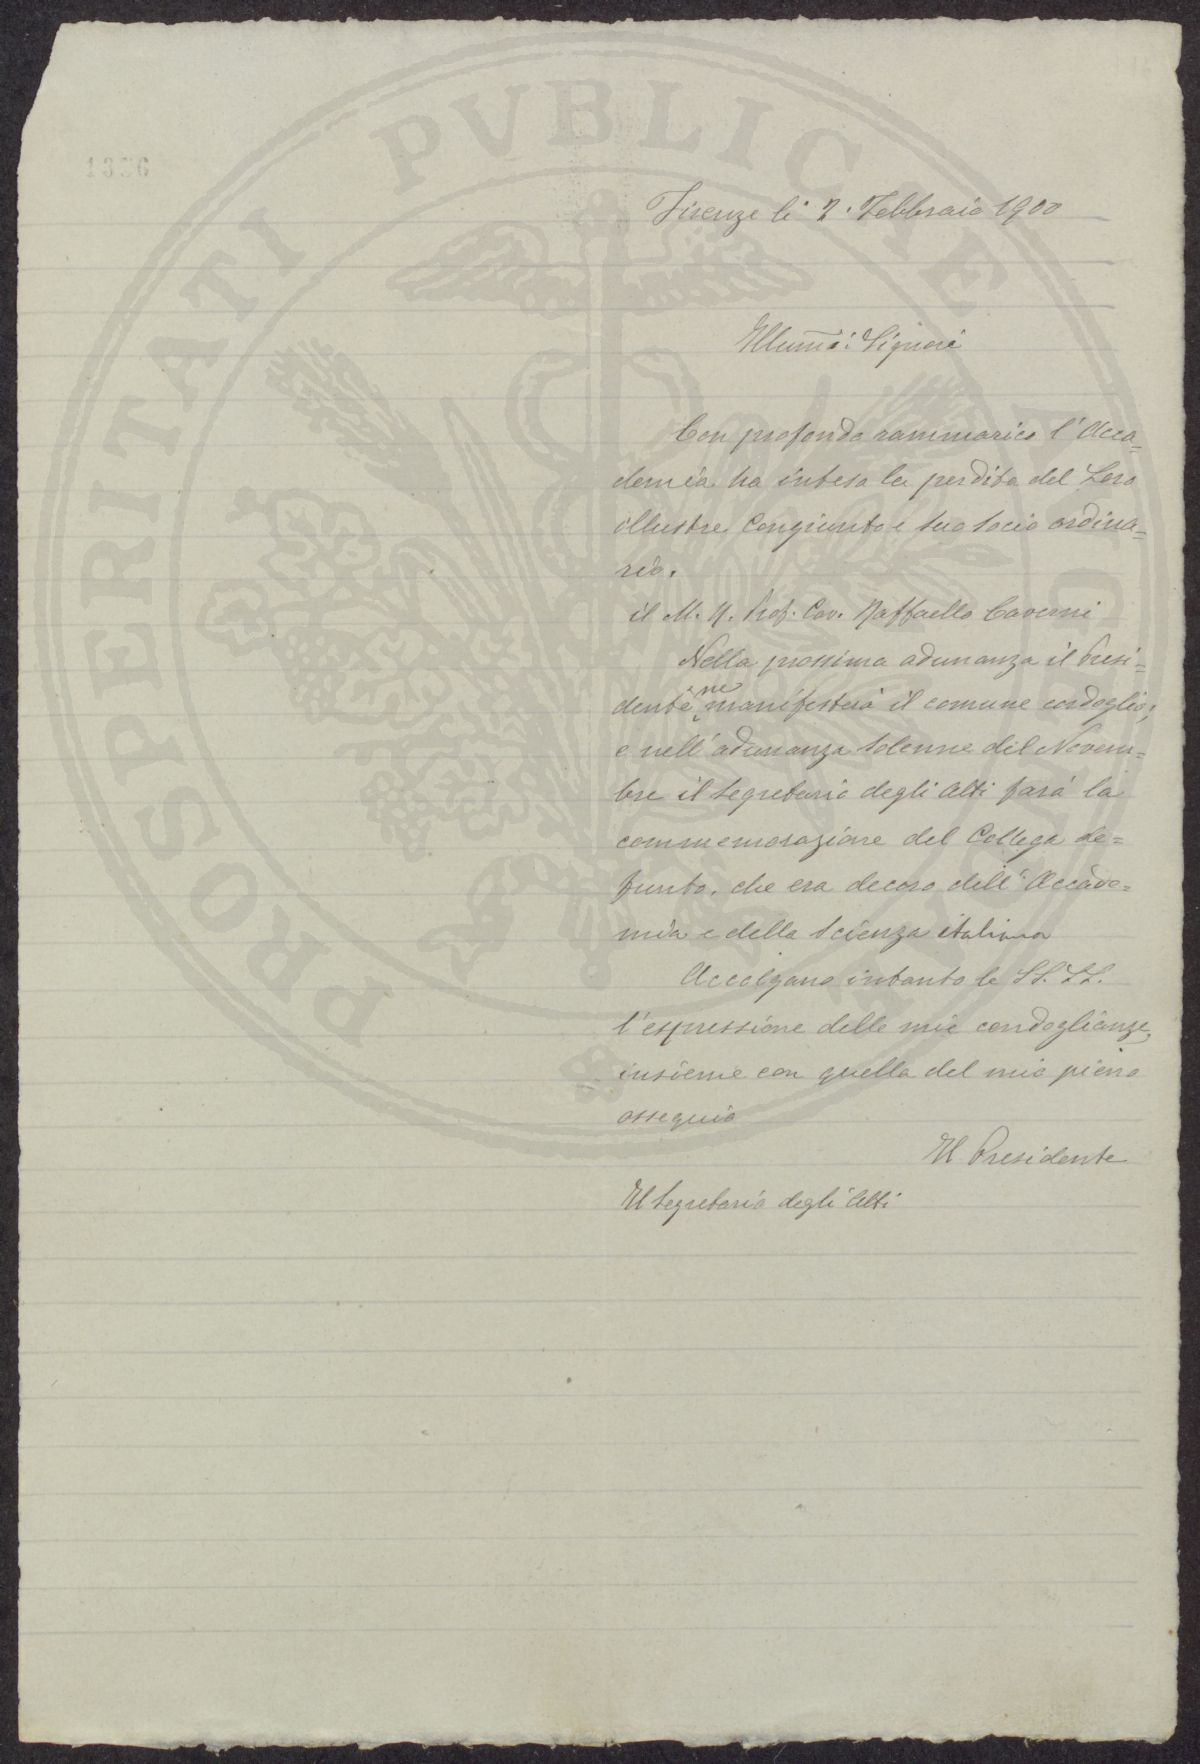 PROSPERITATI PVBLICAE AVGENDAE
Firenze li 2. Febbraio 1900
Illumi̅i: Signori
Con profondo rammarico l'Acca=
demia ha inteso la perdita del Loro
illustre Congiunto e suo socio ordina=
rio.
il M. R. Prof. Cav. Raffaello Caverni
Nella prossima adunanza il Presi=
dente ne manifesterà il comune cordoglio;
e nell'adunanza solenne del Novem=
bre il Segretario degli Atti farà la
commemorazione del Collega de=
funto, che era decoro dell'Accade=
mia e della Scienza italiana
Accolgano intanto le SS. LL.
l'espressione delle mie condoglianze,
insieme con quella del mio pieno
ossequio
Il Presidente
Il Segretario degli Atti